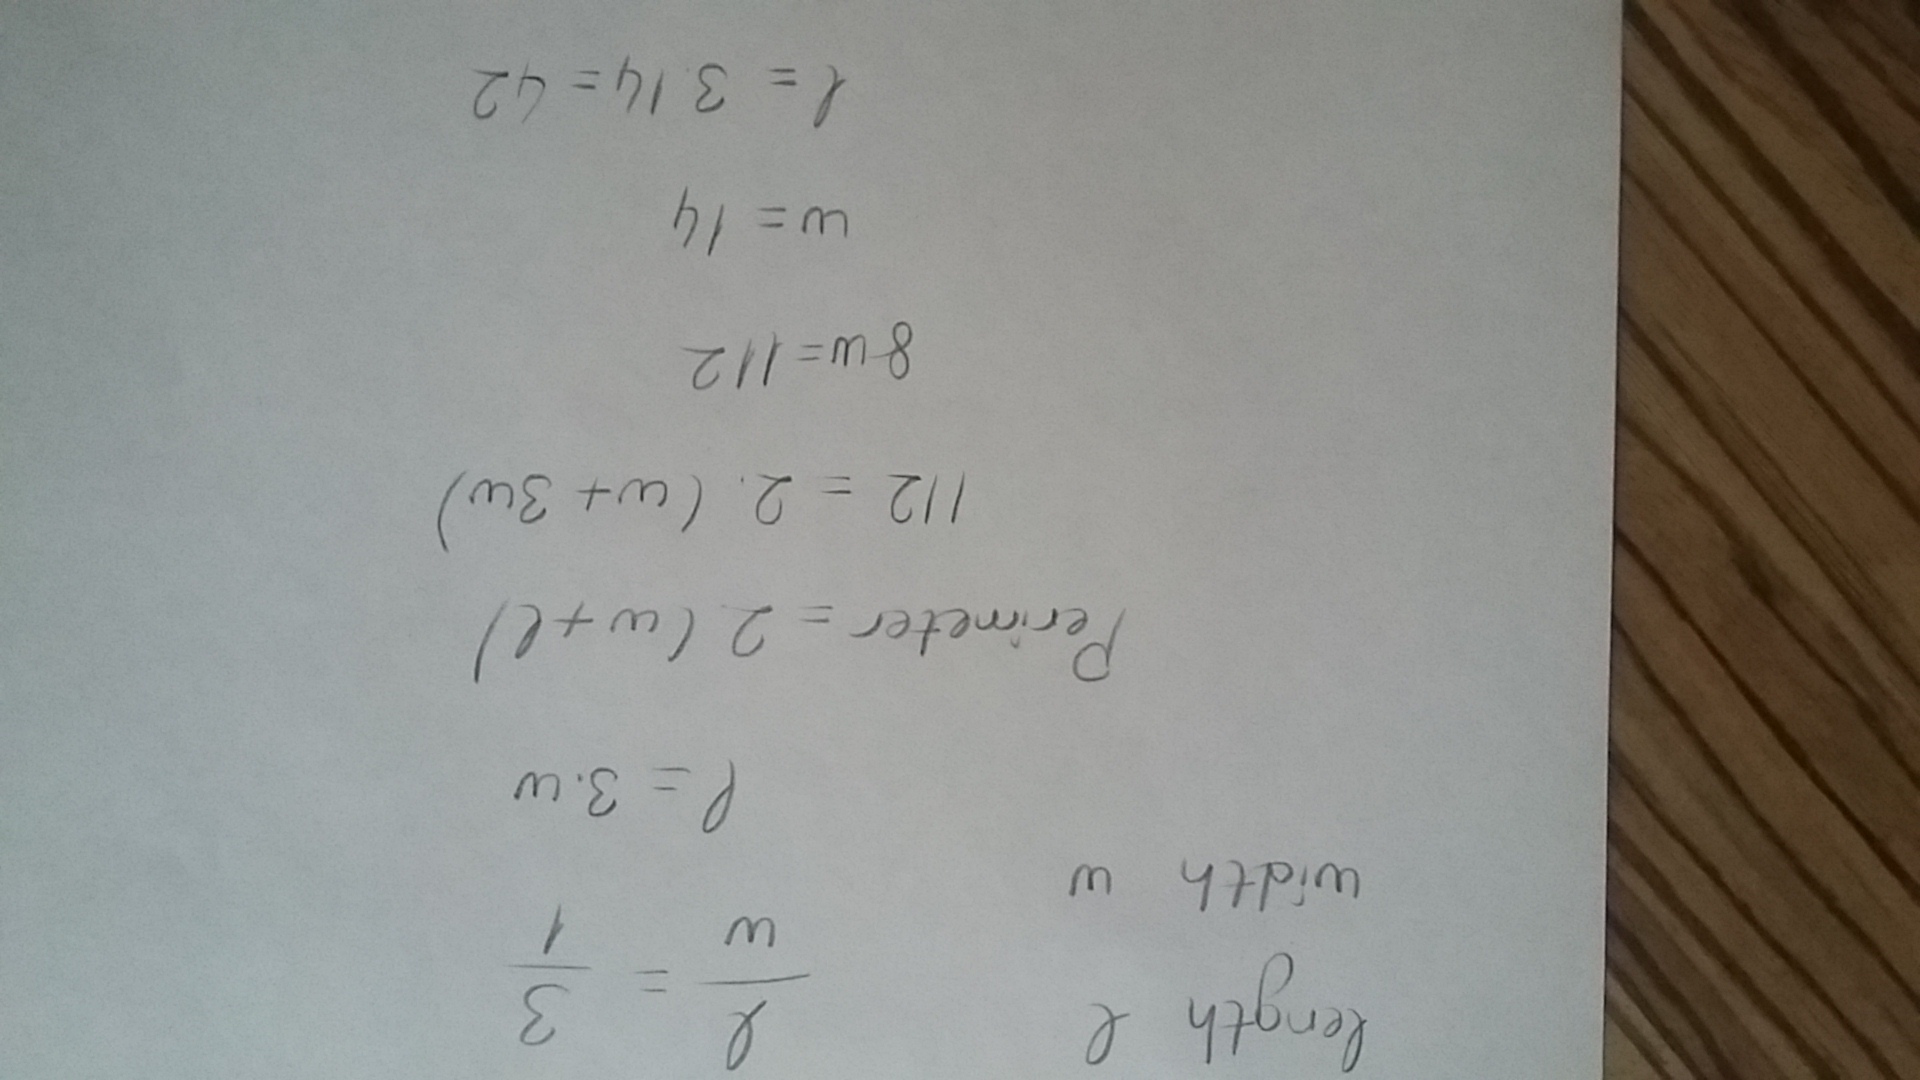 length l
l/w = 3/1
width w
l = 3.w
Perimeter = 2.(w+l)
112 = 2.(w+3w)
8w=112
w=14
l = 3.14=42